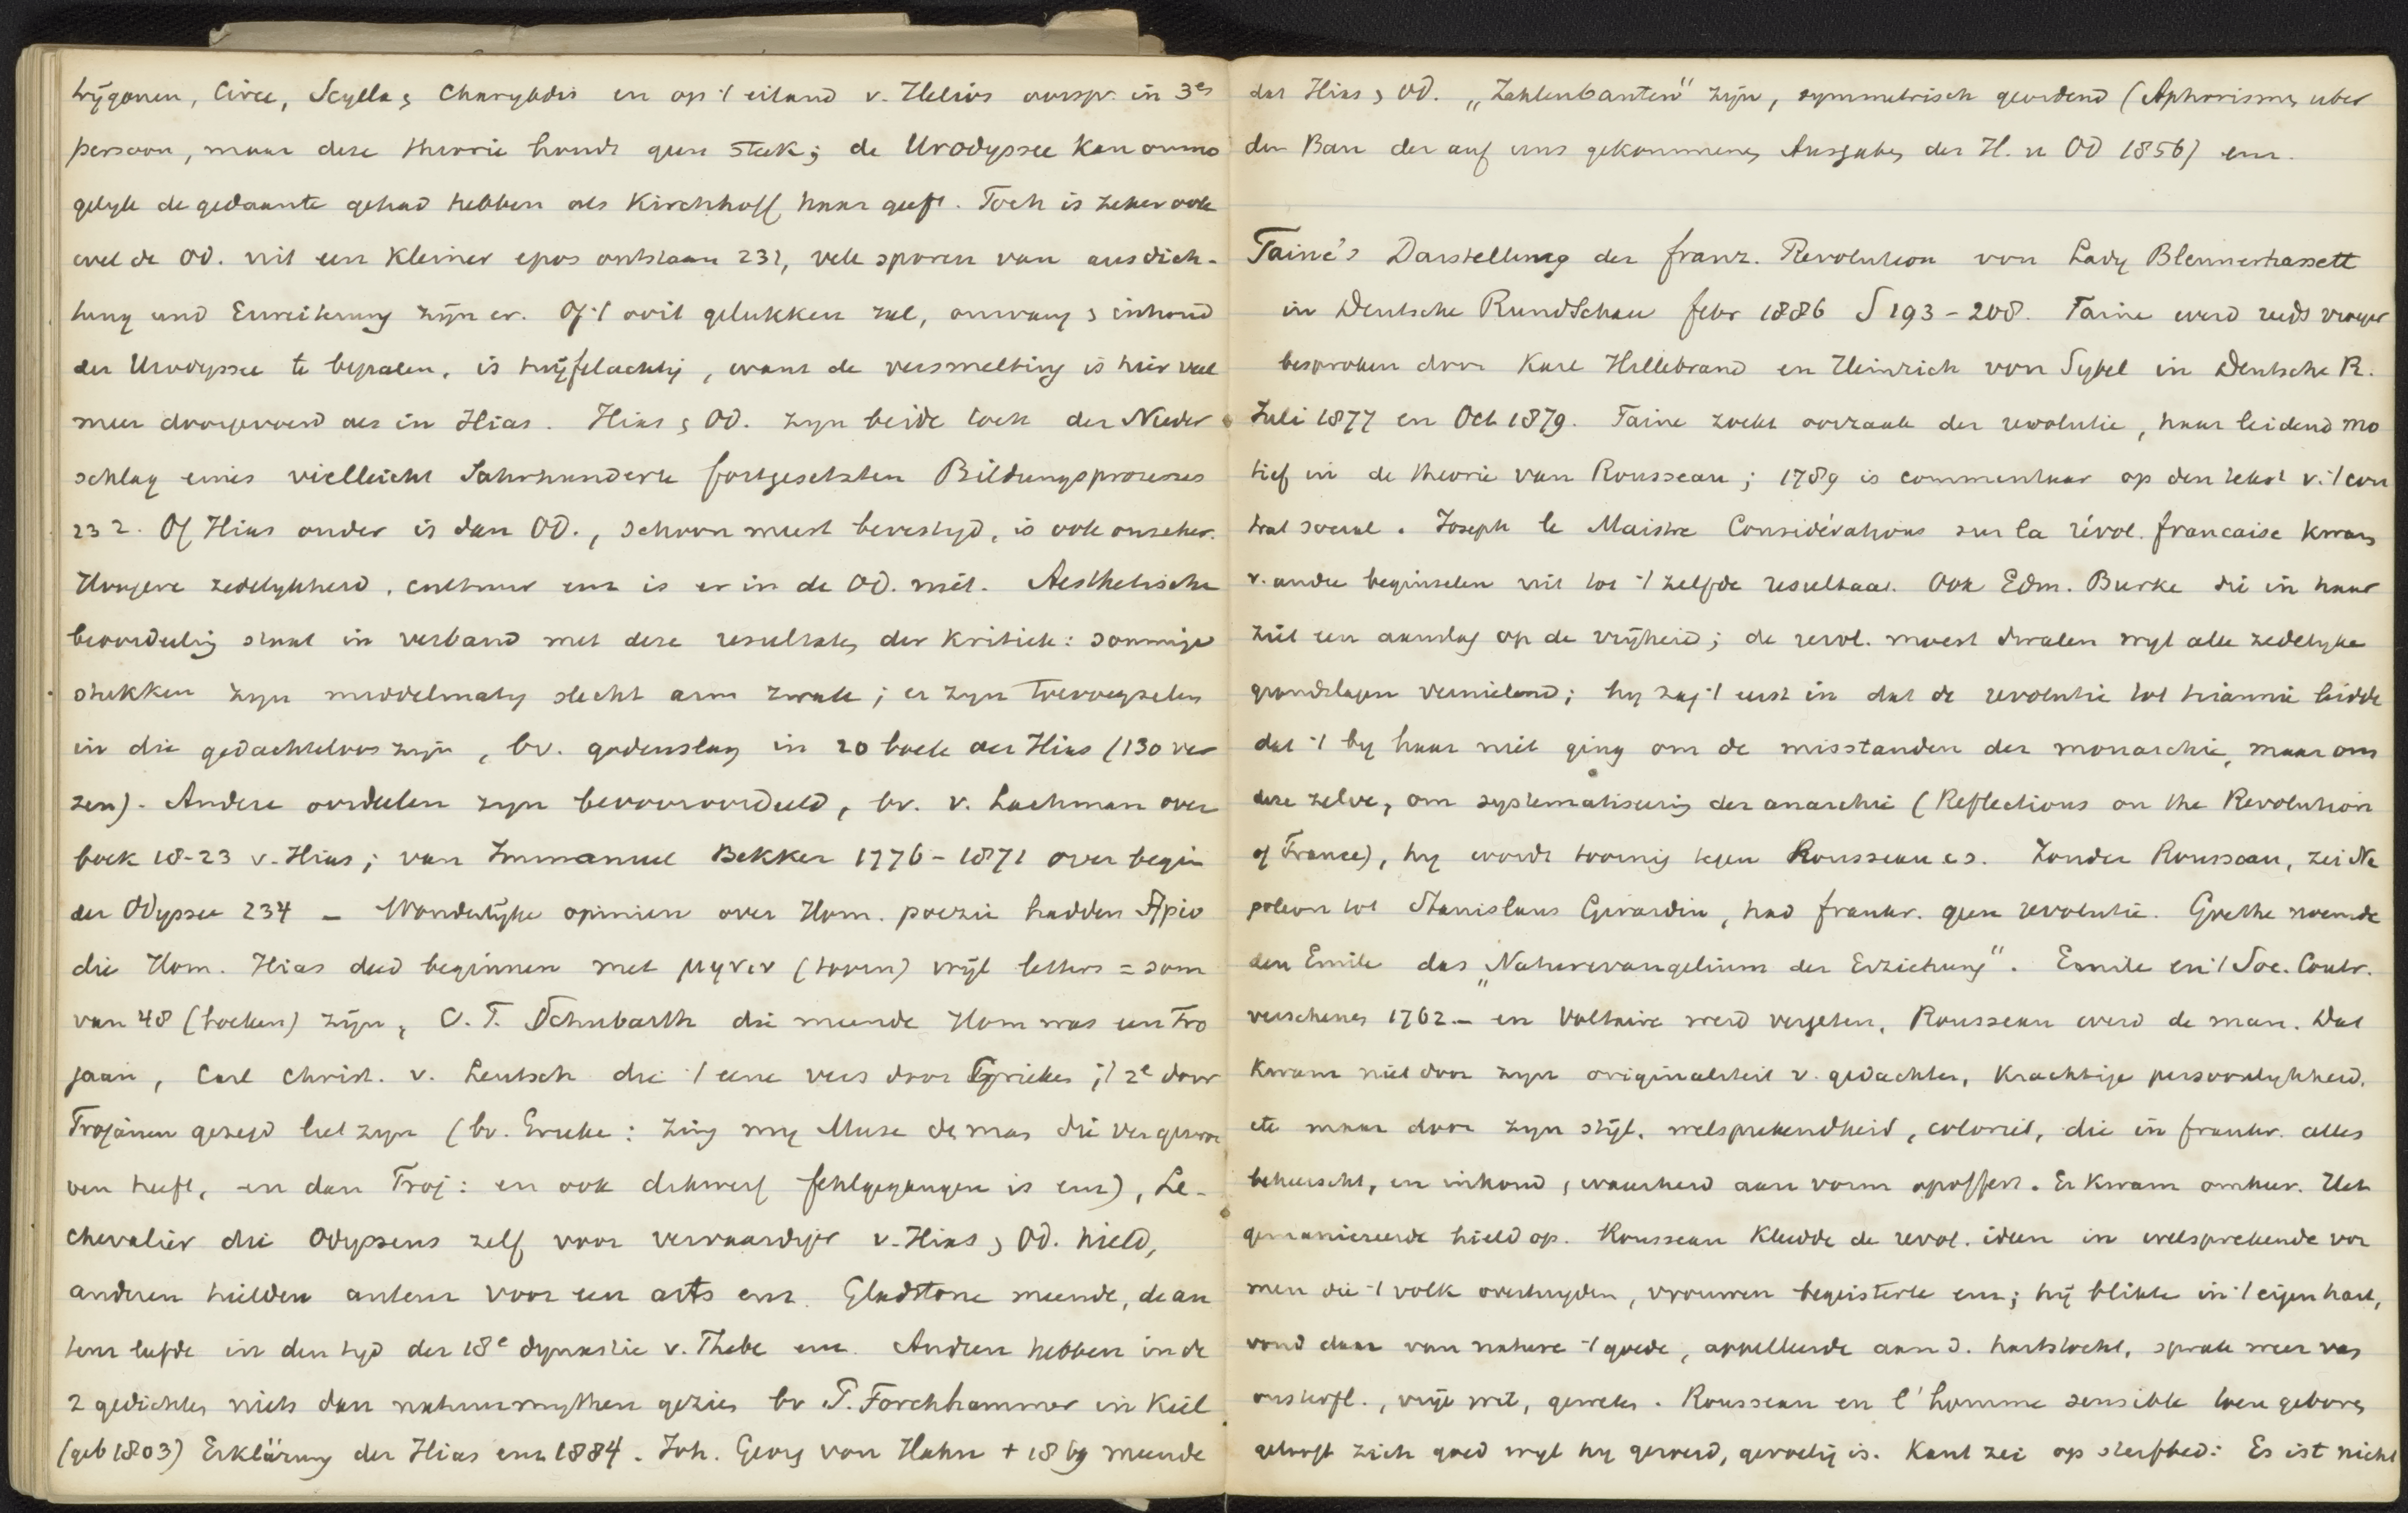 trÿgonen, Circe, Scylla & Charybdis en op 't eiland v. Helios oorspr. in 3es
persoon, maar deze theorie houdt geen steek; de Urodyssee kan onmo
gelyk de gedaante gehad hebben als Kirchhoff haar geeft. Toch is zeker ook
wel de Od. uit een kleiner epos ontstaan 231, vele sporen van ausdich-
tung und Erweiterung zÿn er. Of 't ooit gelukken zal, omvang & inhoud
der Urodyssee te bepalen, is twÿfelachtig, want de versmelting is hier veel
meer doorgevoerd als in Ilias. Ilias & Od. zyn beide toch der Nieder
schlag eines vielleicht Jahrhunderte fortgesetzten Bildungsprozesses
232. Of Ilias ouder is dan Od., schoon meest bevestigd, is ook onzeker.
Hoogere zedelykheid, cultuur enz is er in de Od. niet. Aesthetische
beoordeelig staat in verband met deze resultaten der kritiek: sommige
stukken zyn middelmatig slecht arm zwak; er zyn toevoegselen
in die gedachteloos zyn, bv. godenslag in 20 boek der Ilias (130 ver
zen). Andere oordeelen zyn bevooroordeeld, bv. v. Lachman over
boek 18-23 v. Ilias; van Immanuel Bekker 1776-1871 over begin
der Odyssee 234 – Wonderlÿke opinien over Hom. poezie hadden Apio
die Hom. Ilias deed beginnen met μηνιν (toorn) wÿl letters = som
van 48 (boeken) zÿn, C. T. Schubarth die meende Hom was een Tro
jaan, Carl Christ. v. Leutsch die 't eene vers door Grieken, 't 2e door
Trojanen gezegd liet zyn (bv. Grieke: Zing my Muse de man die ver gezwor
ven heeft, en dan Troj: en ook dikwerf fehlgegangen is enz), Le-
chevalier die Odysseus zelf voor vervaardiger v. Ilias & Od. hield,
anderen hielden auteur voor een arts enz. Gladstone meende, de au
teur leefde in den tyd der 18e dynastie v. Thebe enz. Anderen hebben in de
2 gedichten niets dan natuurmythen gezien bv P. Forchhammer in Kiel
(geb 1803) Erklärung der Ilias enz 1884. Joh. Georg von Hahn + 1869 meende
dat Ilias & Od. „Zahlenbauten" zyn, symmetrisch geordend (Aphorismen uber
den Bau der auf uns gekommenen Ausgaben der Il. u Od 1856) enz.
Taine's Darstellung der franz. Revolution von Lady Blennerhassett
in Deutsche Rundschau febr 1886 S 193-208. Taine werd reeds vroeger
besproken door Karl Hillebrand en Heinrich von Sybel in Deutsche R.
Juli 1877 en Oct 1879. Taine zoekt oorzaak der revolutie, haar leidend mo
tief in de theorie van Rousseau; 1789 is commentaar op den tekst v. 't con
trat social. Joseph le Maistre Considérations sur la révol. francaise kwam
v. andre beginselen uit tot 't zelfde resultaat. Ook Edm. Burke die in haar
ziet een aanslag op de vrÿheid; de revol. moest dwalen wyl alle zedelyke
grondslagen vernielend; hy zag 't eerst in dat de revolutie tot tirannie leidde
dat 't by haar niet ging om de misstanden der monarchie, maar om
deze zelve, om systematisering der anarchie (Reflections on the Revolution
of France), hy wordt toornig tegen Rousseau es. Zonder Rousseau, zei Na
poleon tot Stanislaus Girardin, had frankr. geen revolutie. Goethe noemde
den Emile das „Naturevangelium der Erziehung". Emile en 't Soc. Contr.
verschenen 1762 – en Voltaire werd vergeten, Rousseau werd de man. Dat
kwam niet door zyn originaliteit v. gedachten, krachtige persoonlykheid,
etc maar door zyn stÿl, welsprekendheid, coloriet, die in frankr. alles
beheerscht, en inhoud, waarheid aan vorm opoffert. Er kwam omkeer. Het
gemanieerde hield op. Rousseau kleedde de revol. ideen in welsprekende vor
men die 't volk overtuigden, vrouwen begeisterte enz; hÿ blikte in 't eigen hart,
vond daar van nature 't goede, appelleerde aan d. hartstocht, sprak weer van
onsterfl., vrÿe wil, geweten. Rousseau en l'homme sensible toen geboren
gelooft zich goed wyl hy geroerd, gevoelig is. Kant zei op sterfbed: Es ist nicht